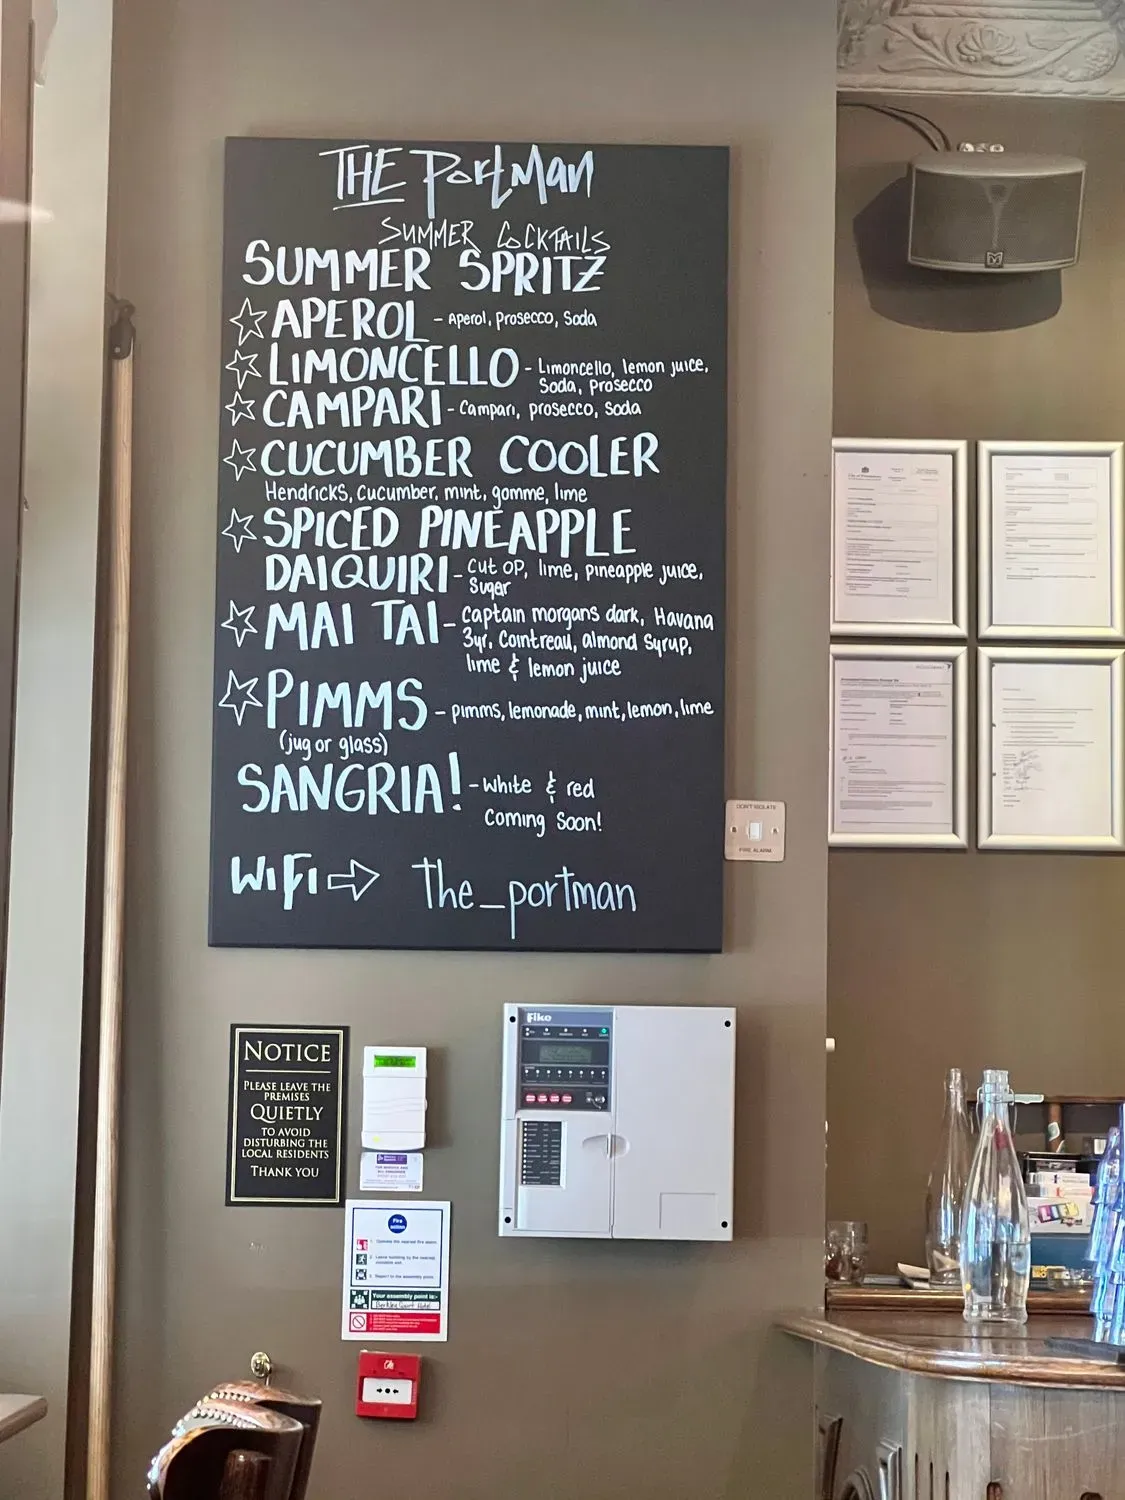 THE PortMan
SUMMER COCKTAILS
SUMMER SPRITZ
APEROL - Aperol, prosecco, Soda
LIMONCELLO - Limoncello, lemon juice,
Soda, prosecco
CAMPARI - Campari, prosecco, Soda
CUCUMBER COOLER
Hendricks, Cucumber, mint, gomme, lime
SPICED PINEAPPLE
DAIQUIRI - Cut OP, lime, pineapple juice,
Sugar
MAI TAI - Captain morgans dark, Havana
3yr, Cointreau, almond Syrup,
lime & lemon juice
PIMMS - pimms, lemonade, mint, lemon, lime
(jug or glass)
SANGRIA! - White & red
Coming Soon!
WiFi the_portman
DON'T ISOLATE
FIRE ALARM
NOTICE
PLEASE LEAVE THE
PREMISES
QUIETLY
TO AVOID
DISTURBING THE
LOCAL RESIDENTS
THANK YOU
Fike
Fire
action
1. Operate the nearest fire alarm.
2. Leave building by the nearest
available exit.
3. Report to the assembly point.
Your assembly point is:-